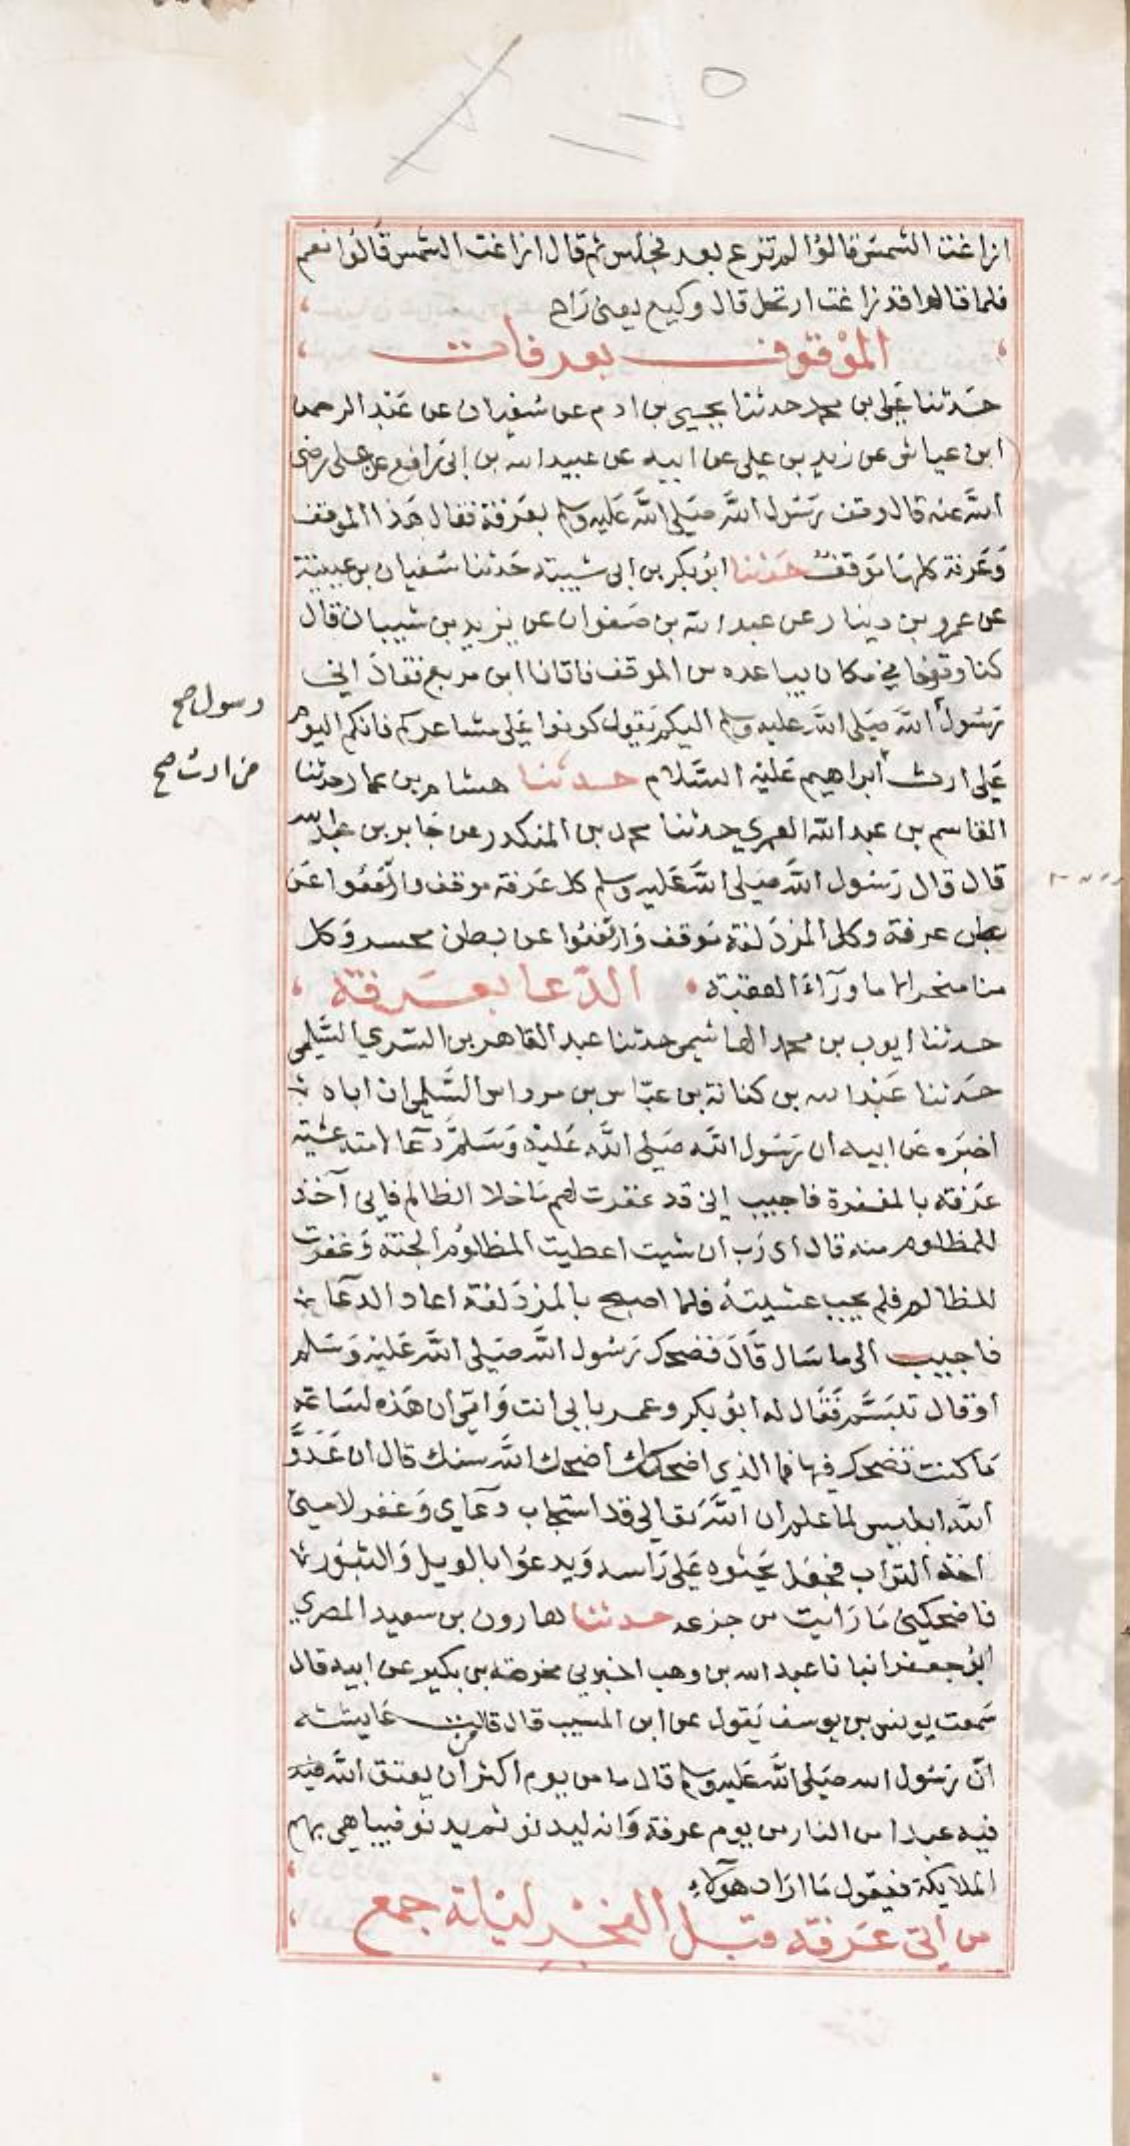 ازاغت الشمس قالوا لم تزغ بعد فجلس ثم قال ازاغت الشمس قالوا نعم
فلما قالوا قد زاغت ارتحل قال وكيع يعني راح
الموقوف بعرفات
حدثنا علي بن محمد حدثنا يحيى بن ادم عن سفيان عن عبد الرحمن
ابن عياش عن زيد بن علي عن ابيه عن عبيد الله بن ابي رافع عن علي رضي
الله عنه قال وقف رسول الله صلى الله عليه وسلم بعرفة فقال هذا الموقف
وعرفة كلها موقف حدثنا ابو بكر بن ابي شيبة حدثنا سفيان بن عيينة
عن عمرو بن دينار عن عبد الله بن صفوان عن يزيد بن شيبان قال
كنا وقوفا في مكان يباعده من الموقف فاتانا ابن مربع فقال اني
رسول الله صلى الله عليه وسلم اليكم يقول كونوا على مشاعركم فانكم اليوم
رسول صح
على ارث ابراهيم عليه السلام حدثنا هشام بن عمار حدثنا
من ارث صح
القاسم بن عبد الله العمري حدثنا محمد بن المنكدر عن جابر بن عبد الله
قال قال رسول الله صلى الله عليه وسلم كل عرفة موقف وارتفعوا عن
بطن عرفة وكل المزدلفة موقف وارتفعوا عن بطن محسر وكل
منا منحر الا ما وراء العقبة الدعا بعرفة
حدثنا ايوب بن محمد الهاشمي حدثنا عبد القاهر بن السري السلمي
حدثنا عبد الله بن كنانة بن عباس بن مرداس السلمي ان اباه
اخبره عن ابيه ان رسول الله صلى الله عليه وسلم دعا لامته عشية
عرفة بالمغفرة فاجيب اني قد غفرت لهم ما خلا الظالم فاني آخذ
للمظلوم منه قال اي رب ان شيت اعطيت المظلوم الجنة وغفرت
للظالم فلم يجب عشيته فلما اصبح بالمزدلفة اعاد الدعا
فاجيب الى ما سال قال فضحك رسول الله صلى الله عليه وسلم
او قال تبسم فقال له ابو بكر وعمر بابي انت وامي ان هذه لساعة
ما كنت تضحك فيها فما الذي اضحكك اضحك الله سنك قال ان عدو
الله ابليس لما علم ان الله تعالى قد استجاب دعاي وغفر لامتي
اخذ التراب فجعل يحثوه على راسه ويدعوا بالويل والثبور
فاضحكني ما رايت من جزعه حدثنا هارون بن سعيد المصري
ابو جعفر انبانا عبد الله بن وهب اخبرني مخرمة بن بكير عن ابيه قال
سمعت يونس بن يوسف يقول عن ابن المسيب قال قالت عايشة
ان رسول الله صلى الله عليه وسلم قال ما من يوم اكثر ان يعتق الله فيه
فيه عبدا من النار من يوم عرفة وانه ليدنو ثم يدنو فيباهي بهم
الملايكة فيقول ما اراد هولاء
من اتى عرفة قبل الفجر ليلة جمع